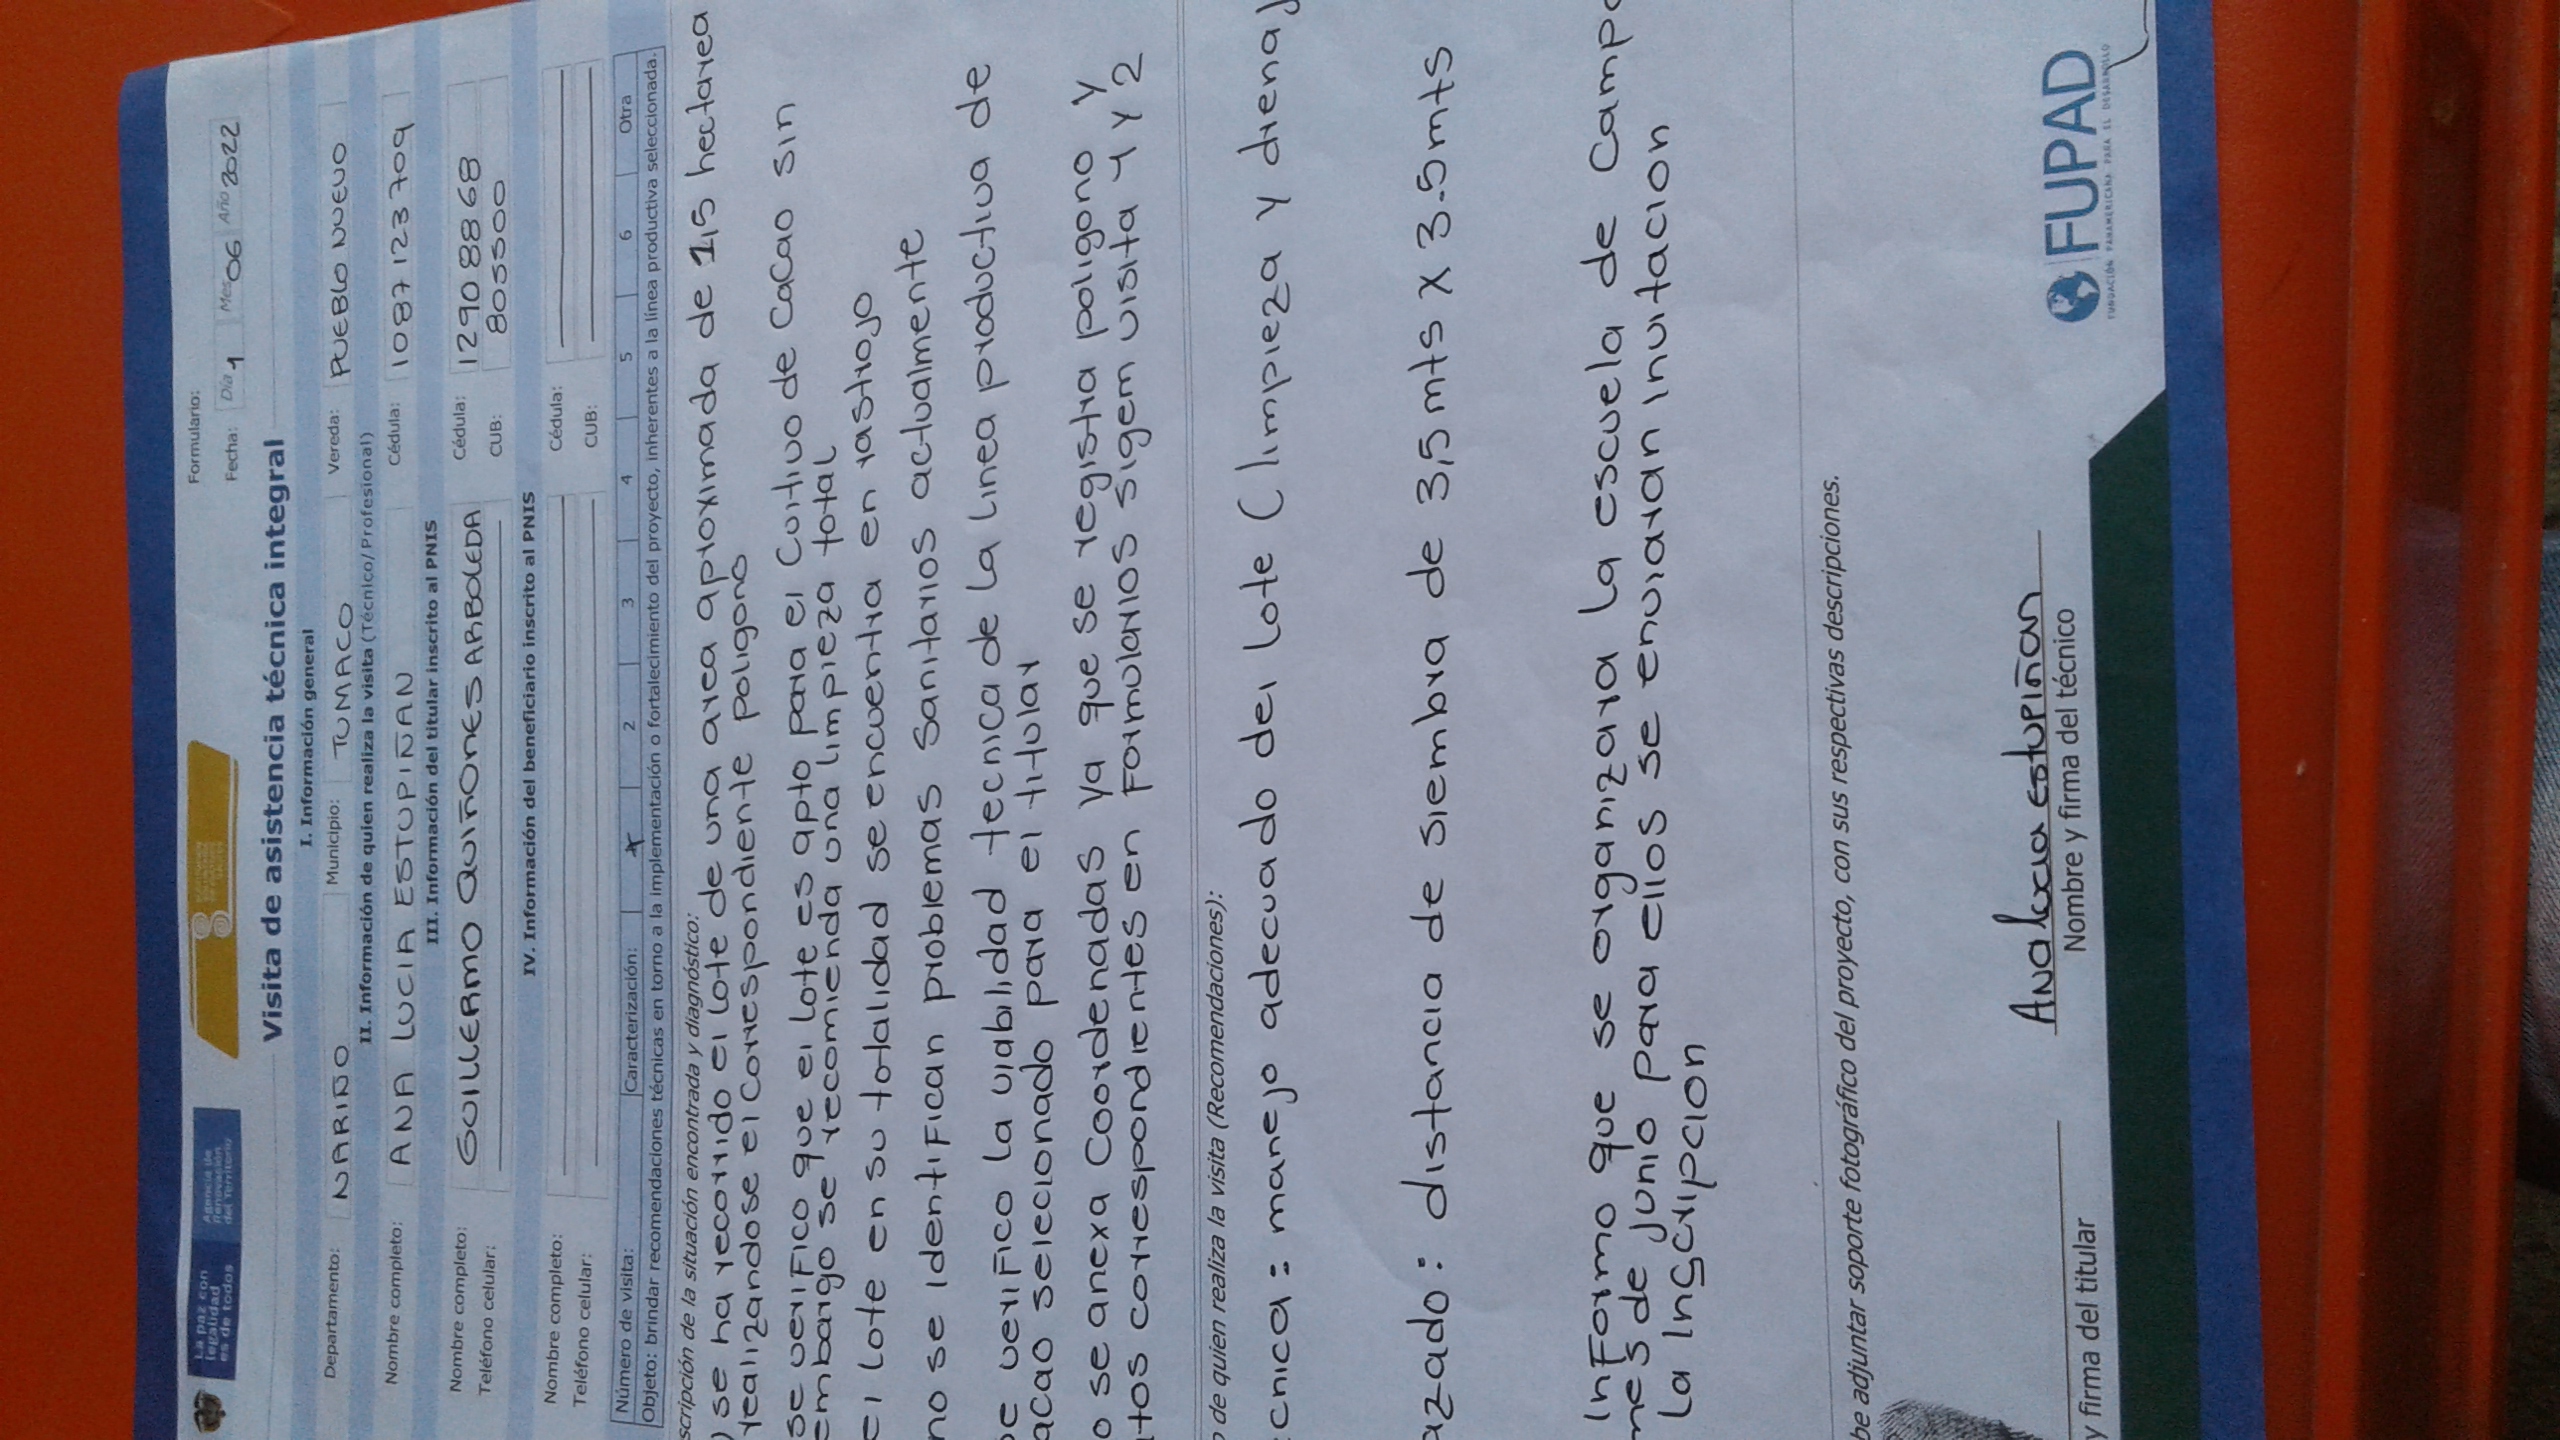 La paz con legalidad es de todos
Agencia de Renovación del Territorio
Formulario:
Fecha: Día 1 Mes 06 Año 2022
Visita de asistencia técnica integral
I. Información general
Departamento: NARIÑO Municipio: TUMACO Vereda: PUEBLO NUEVO
II. Información de quien realiza la visita (Técnico/Profesional)
Nombre completo: ANA LUCIA ESTUPIÑAN Cédula: 1087123709
III. Información del titular inscrito al PNIS
Nombre completo: GUILLERMO QUIÑONES ARBOLEDA Cédula: 12908868
Teléfono celular: CUB: 805500
IV. Información del beneficiario inscrito al PNIS
Nombre completo: Cédula:
Teléfono celular: CUB:
Número de visita: Caracterización: X 2 3 4 5 6 Otra
Objeto: brindar recomendaciones técnicas en torno a la implementación o fortalecimiento del proyecto, inherentes a la línea productiva seleccionada.
scripción de la situación encontrada y diagnóstico:
) se ha recorrido el lote de una area aproximada de 1,5 hectarea
realizandose el correspondiente poligono
se verifico que el lote es apto para el cultivo de cacao sin
embargo se recomienda una limpieza total
el lote en su totalidad se encuentra en rastrojo
no se identifican problemas sanitarios actualmente
se verifico la viabilidad tecnica de la linea productiva de
acao seleccionado para el titular
o se anexa coordenadas ya que se registra poligono y
tos correspondientes en formularios sigem visita 1 y 2
o de quien realiza la visita (Recomendaciones):
cnica: manejo adecuado del lote (limpieza y drenaj
azado: distancia de siembra de 3,5 mts x 3.5 mts
informo que se organizara la escuela de campo
mes de junio para ellos se enviaran invitacion
la inscripcion
be adjuntar soporte fotográfico del proyecto, con sus respectivas descripciones.
Ana lucia estupiñan
y firma del titular Nombre y firma del técnico
FUPAD
FUNDACIÓN PANAMERICANA PARA EL DESARROLLO